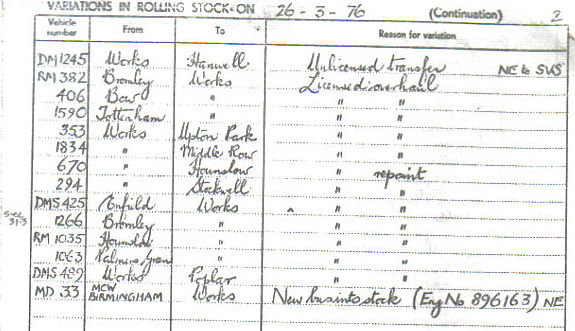 VARIATIONS IN ROLLING STOCK ON 26 - 3 - 76 (Continuation) 2
Vehicle number From To Reason for variation
DM 1245 Works Hanwell Unlicensed transfer NE to SVS
RM 382 Bromley Works Licensed overhaul
406 Bow " " "
1590 Tottenham " " "
353 Works Upton Park " "
1834 " Middle Row " "
670 " Hounslow " repaint
294 " Stockwell " "
DMS 425 Enfield Works " "
1266 Bromley " " "
RM 1035 Hounslow " " "
1063 Palmers Green " " "
DMS 489 Works Poplar " "
MD 33 MCW BIRMINGHAM Works New bus into stock (Eng No 896163) NE
31-3